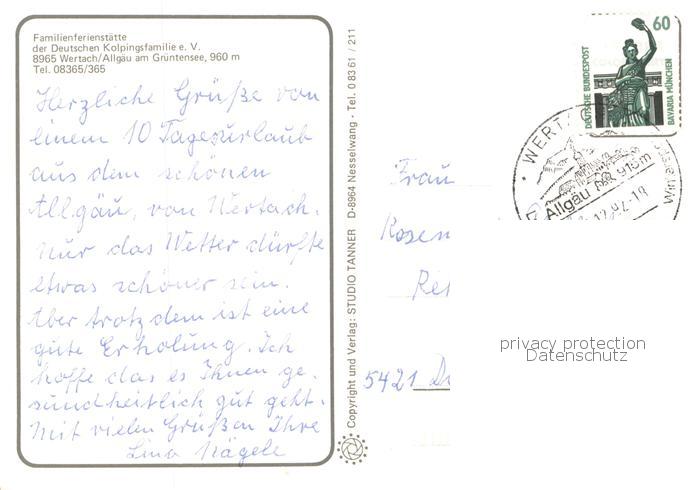 Familienferienstätte
der Deutschen Kolpingsfamilie e. V.
8965 Wertach/Allgäu am Grüntensee, 960 m
Tel. 08365/365
Herzliche Grüße von
einem 10 Tagesurlaub
aus dem schönen
Allgäu, von Wertach.
Nur das Wetter dürfte
etwas schöner sein.
Aber trotzdem ist eine
gute Erholung. Ich
hoffe das es Ihnen ge-
sundheitlich gut geht.
Mit vielen Grüßen Ihre
Lina Nägele
Copyright und Verlag: STUDIO TANNER D-8964 Nesselwang - Tel. 0 83 61 / 211
60
DEUTSCHE BUNDESPOST
BAVARIA MÜNCHEN
WERTA
Allgäu 915m
Frau
Rosen
5421
privacy protection
Datenschutz